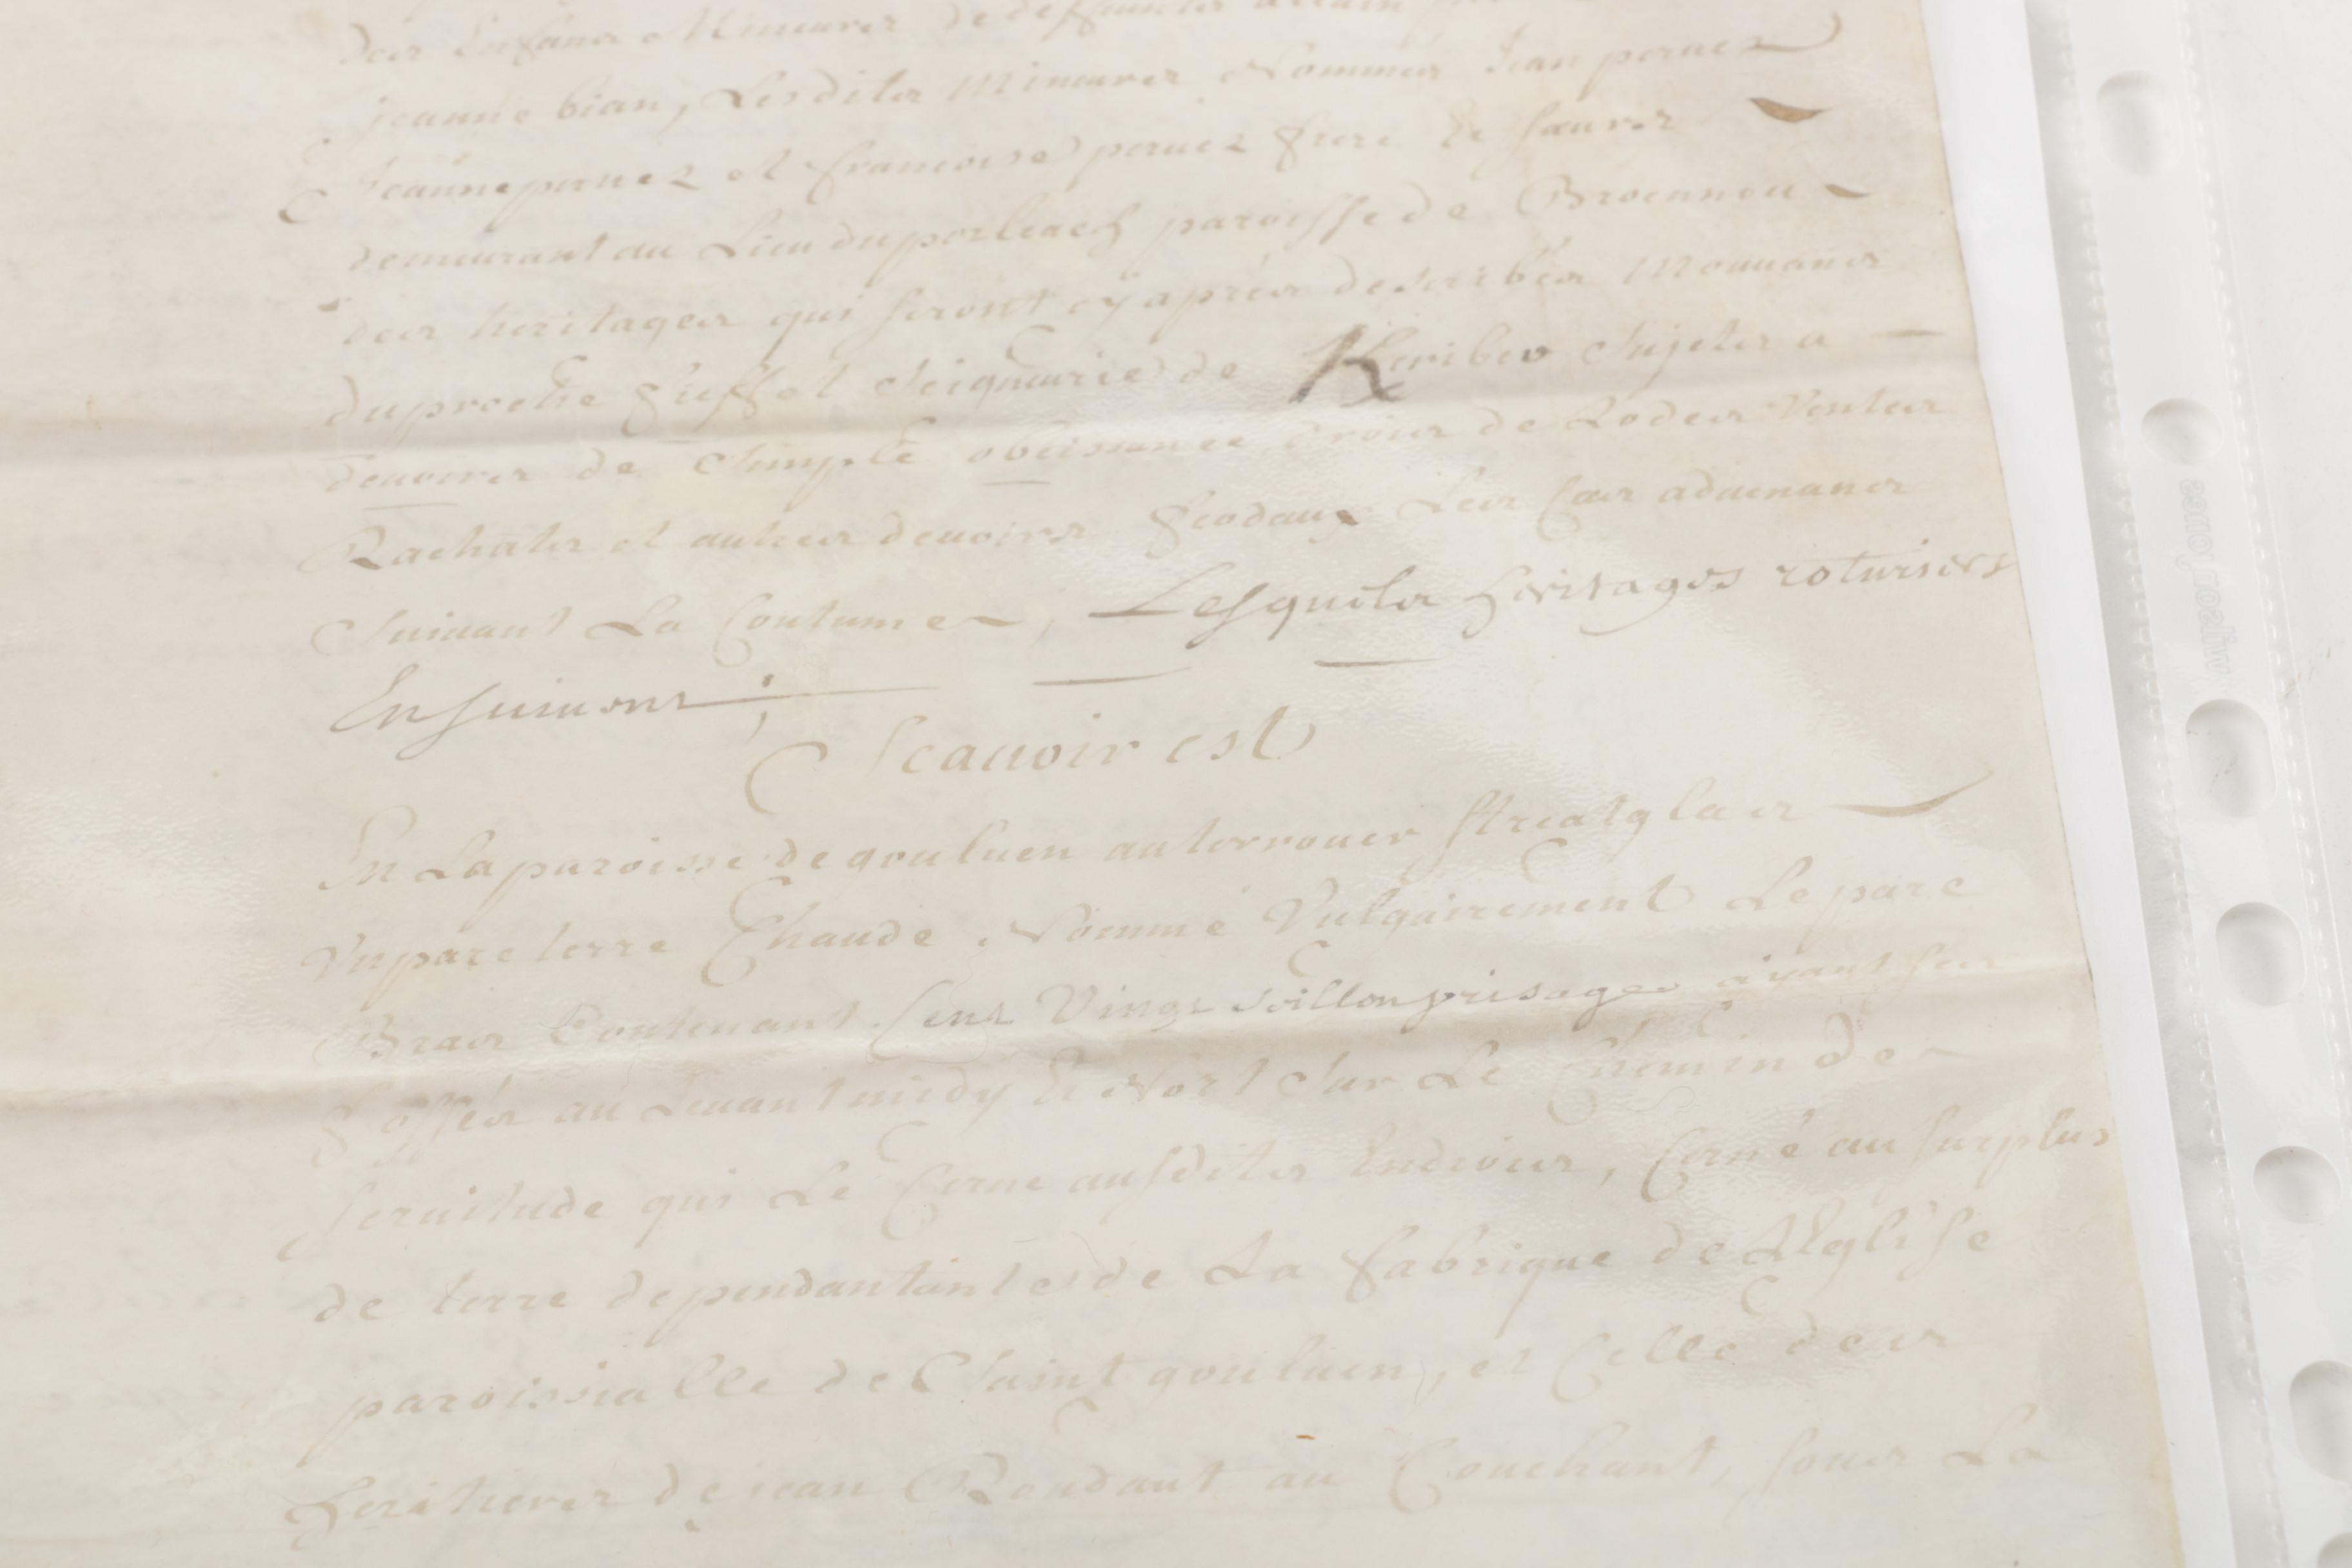 des Enfans Mineures de deffuncts
jeanne bian, Lesdites Mineures Nommés Jean pernez
Jeanne pernez et francoise pernez frere Et sœures
demeurant au Lieu du porleach paroisse de Broennou
des heritages qui seront cy aprés describés Mouuances
du proche fieff et seigneurie de Keribeo sujetes a
deuoires de simple obeissance, droits de Lodes Ventes
Rachates et autres deuoirs feodaux Les Cas aduenances
suiuant La Coutume, Lesqueles heritages roturiers
Ensuiuent;
Scauoir est
En La paroisse de gouluen au terrouer streatglas
Vn parc terre Chaude Nommé Vulgairement Le parc
Bras Contenant Cent Vingt seillon prisage ayant ses
fossés au Leuant midy Et Nort sur Le Chemin de
seruitude qui Le Cerne ausdites Endroits, Cerné au surplus
de terre dependantante de La fabrique de LEglise
paroissialle de Saint gouluen, et Celle des
heritieres de jean Roudaut au Couchant, sous La